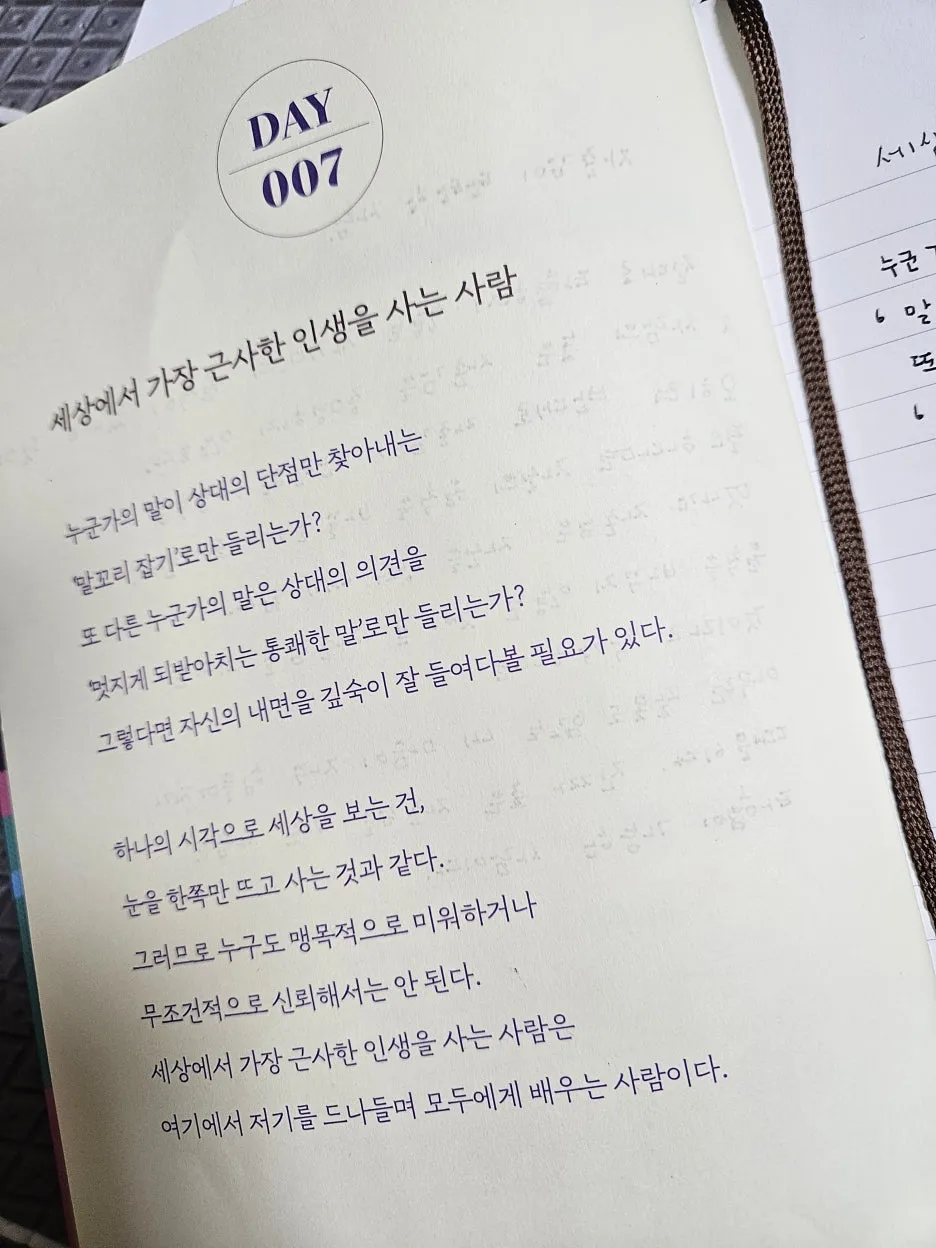 DAY
007
세상에서 가장 근사한 인생을 사는 사람
누군가의 말이 상대의 단점만 찾아내는
'말꼬리 잡기'로만 들리는가?
또 다른 누군가의 말은 상대의 의견을
'멋지게 되받아치는 통쾌한 말'로만 들리는가?
그렇다면 자신의 내면을 깊숙이 잘 들여다볼 필요가 있다.
하나의 시각으로 세상을 보는 건,
눈을 한쪽만 뜨고 사는 것과 같다.
그러므로 누구도 맹목적으로 미워하거나
무조건적으로 신뢰해서는 안 된다.
세상에서 가장 근사한 인생을 사는 사람은
여기에서 저기를 드나들며 모두에게 배우는 사람이다.
누군
' 말
또
'